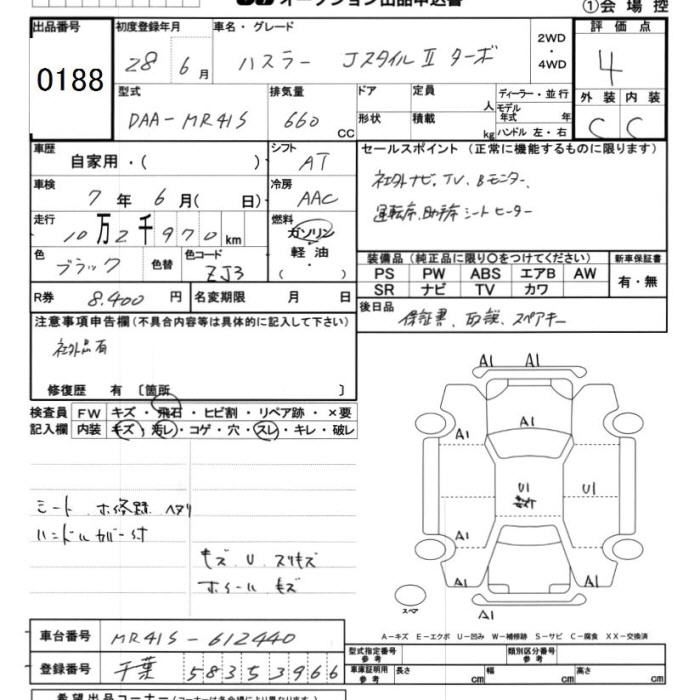 オークション出品申込書
①会場控
出品番号 0188
初度登録年月 28 6月
車名・グレード ハスラー JスタイルⅡ ターボ
2WD ・ 4WD
評価点 4
型式 DAA-MR41S
排気量 660 CC
ドア 定員 人
形状 積載 kg
ディーラー・並行
モデル年式 年
ハンドル 左・右
外装 C 内装 C
車歴 自家用・( )
シフト AT
セールスポイント (正常に機能するものに限ります)
社外ナビ、TV、Bモニター、
運転席、助手席シートヒーター
車検 7年 6月( 日)
冷房 AAC
走行 10万2千970km
燃料 ガソリン・軽油・( )
色 ブラック 色替
色コード ZJ3
装備品 (純正品に限り○をつけてください)
新車保証書
PS PW ABS エアB AW
有・無
SR ナビ TV カワ
R券 8,400円 名変期限 月 日
後日品 保証書、取説、スペアキー
注意事項申告欄(不具合内容等は具体的に記入して下さい)
社外品有
修復歴 有 〔箇所 〕
検査員 FW キズ・飛石・ヒビ割・リペア跡・×要
記入欄 内装 キズ・汚レ・コゲ・穴・スレ・キレ・破レ
A1 A1
A1
A1
U1
U1
A1
A1 A1
A1
スペア
シート ホ修跡 ヘタリ
ハンドルカバー付
キズ U スリキズ
ホイール キズ
A-キズ E-エクボ U-凹み W-補修跡 S-サビ C-腐食 XX-交換済
車台番号 MR41S-612440
登録番号 千葉 583 53966
型式指定番号 参考 類別区分番号 参考
車庫証明用 参考 長さ cm 幅 cm 高さ cm
希望出品コーナー